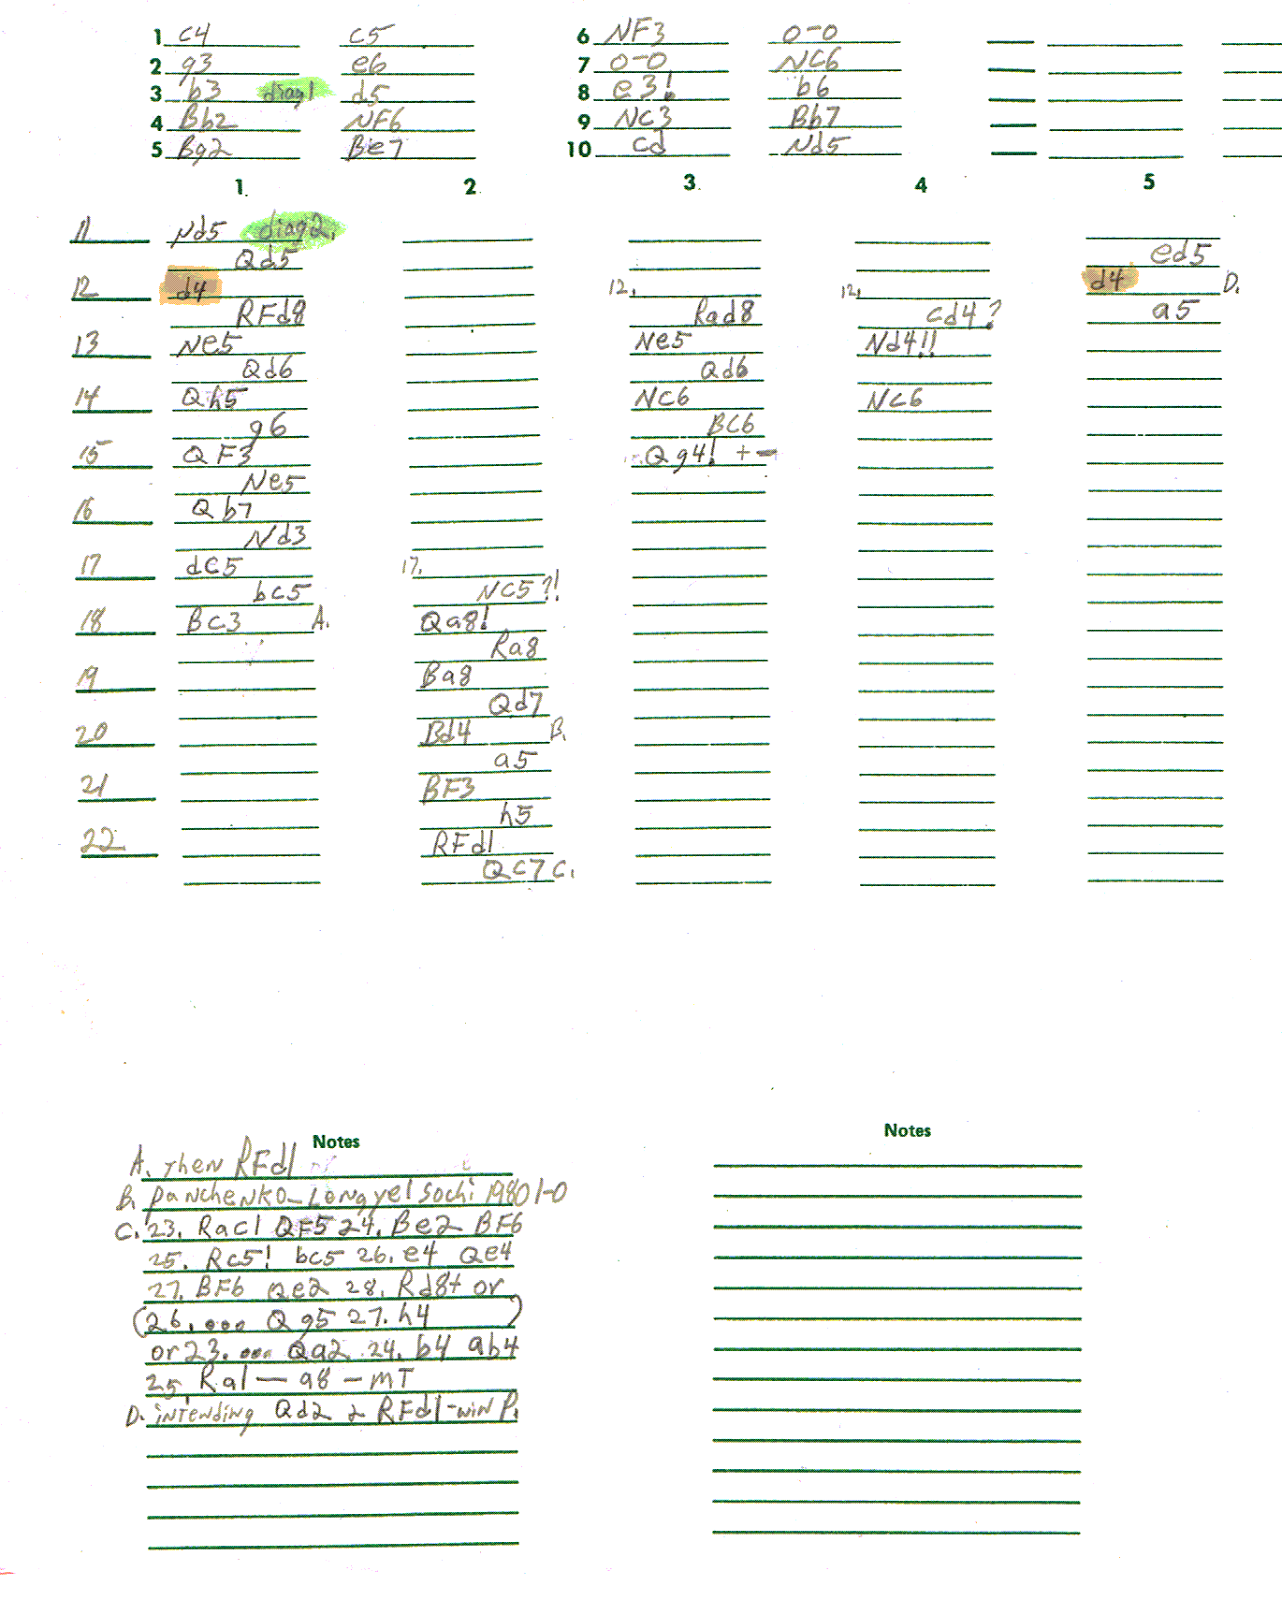 1 c4 c5 6 NF3 0-0
2 g3 e6 7 0-0 NC6
3 b3 diag1 d5 8 e3! b6
4 Bb2 NF6 9 NC3 Bb7
5 Bg2 Be7 10 cd Nd5
1. 2. 3. 4 5
11 Nd5 diag2.
Qd5 ed5
12 d4 12. 12. d4 D.
RFd8 Rad8 cd4? a5
13 Ne5 Ne5 Nd4!!
Qd6 Qd6
14 Qh5 NC6 NC6
g6 BC6
15 QF3 Qg4! +-
Ne5
16 Qb7
Nd3
17 dC5 17.
bc5 NC5?!
18 BC3 A. Qa8!
Ra8
19 Ba8
Qd7
20 Bd4 B.
a5
21 BF3
h5
22 RFd1
QC7 C.
Notes Notes
A. Then RFd1
B. Panchenko-Lengyel Sochi 1980 1-0
C. 23. Rac1 QF5 24. Be2 BF6
25. Rc5! bc5 26. e4 Qe4
27. BF6 Qe2 28. Rd8+ or
(26. ... Qg5 27. h4 )
or 23. ... Qa2 24. b4 ab4
25. Ra1 — a8 - MT
D. intending Qd2 & RFd1-win P.